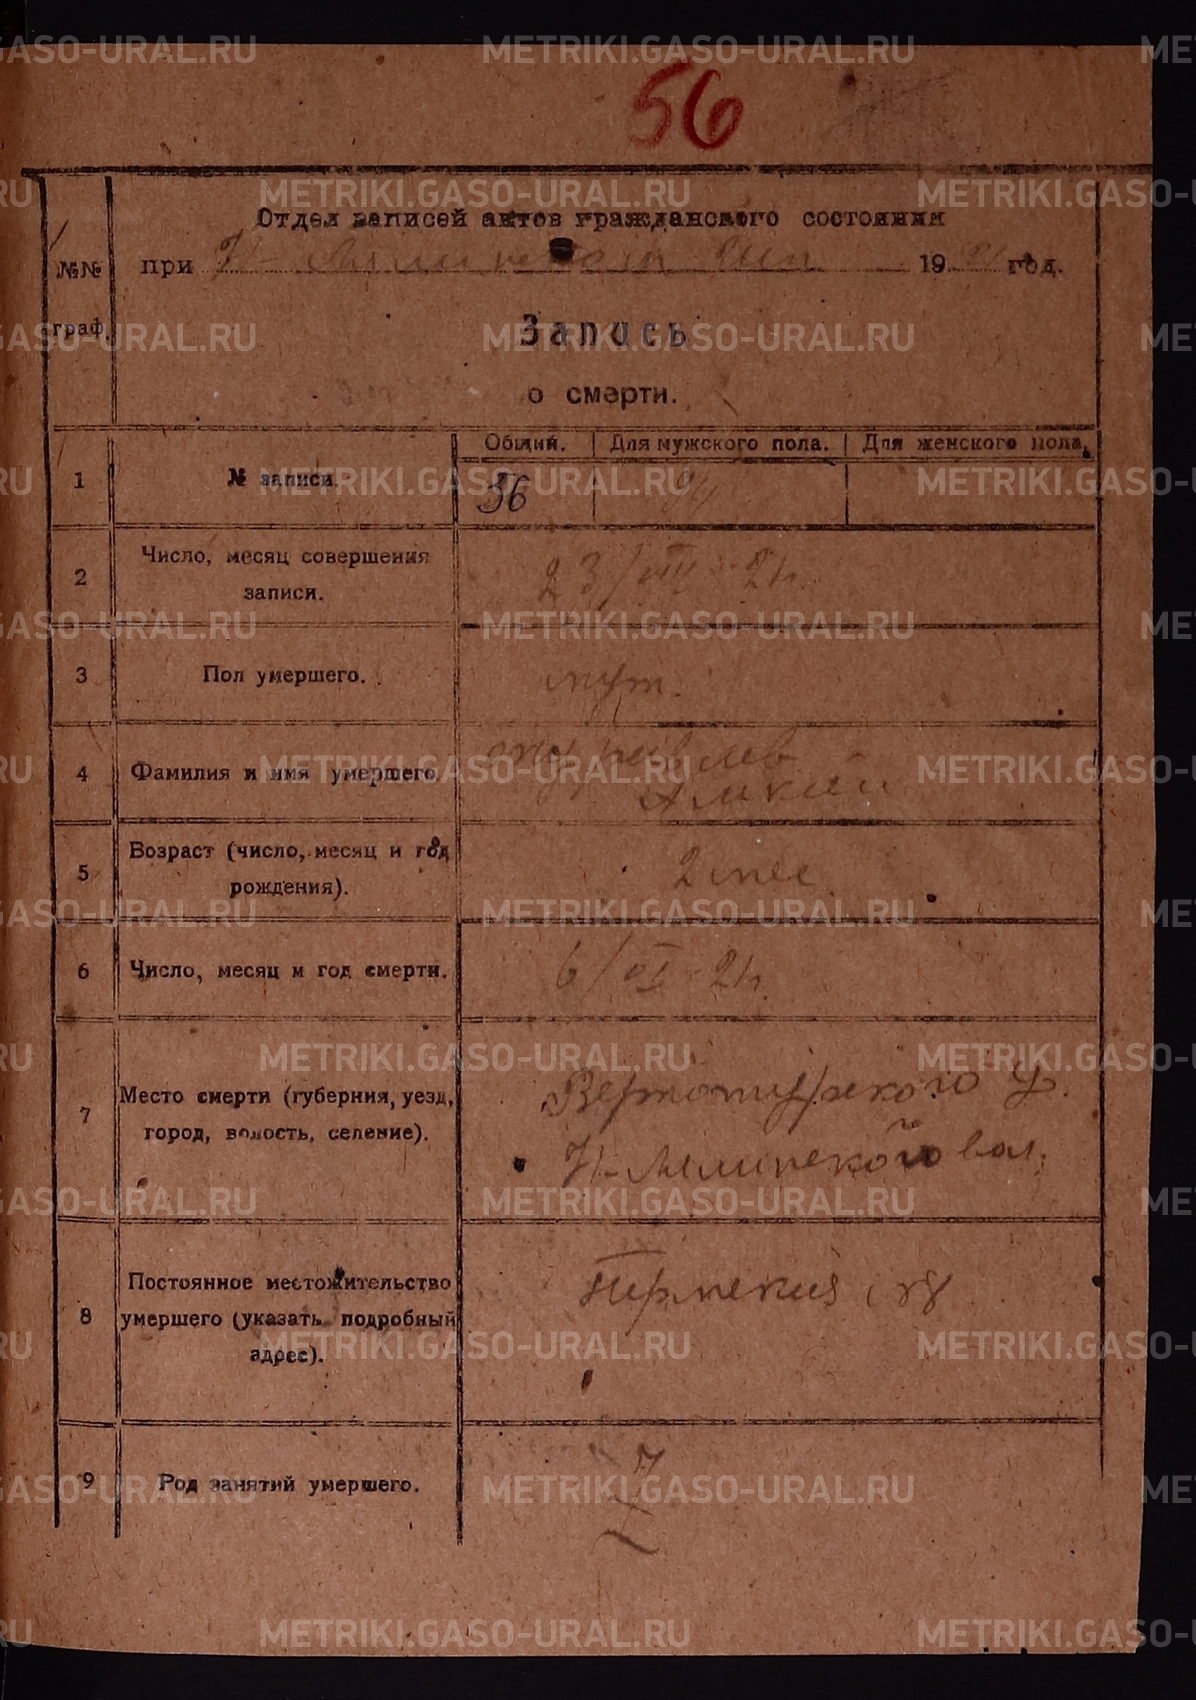 56
Отдел записей актов гражданского состояния
при Н-Лялинском 1921 год.
№№ граф.
Запись
о смерти.
Общий. Для мужского пола. Для женского пола.
1 № записи. 56
2 Число, месяц совершения
записи.
23/VIII 21 г.
3 Пол умершего. муж.
4 Фамилия и имя умершего.
5 Возраст (число, месяц и год
рождения).
2 мес
6 Число, месяц и год смерти. 6/VI 21 г.
7 Место смерти (губерния, уезд,
город, волость, селение).
Верхотурского у.
Н-Лялинской вол.
8 Постоянное местожительство
умершего (указать подробный
адрес).
9 Род занятий умершего.
METRIKI.GASO-URAL.RU